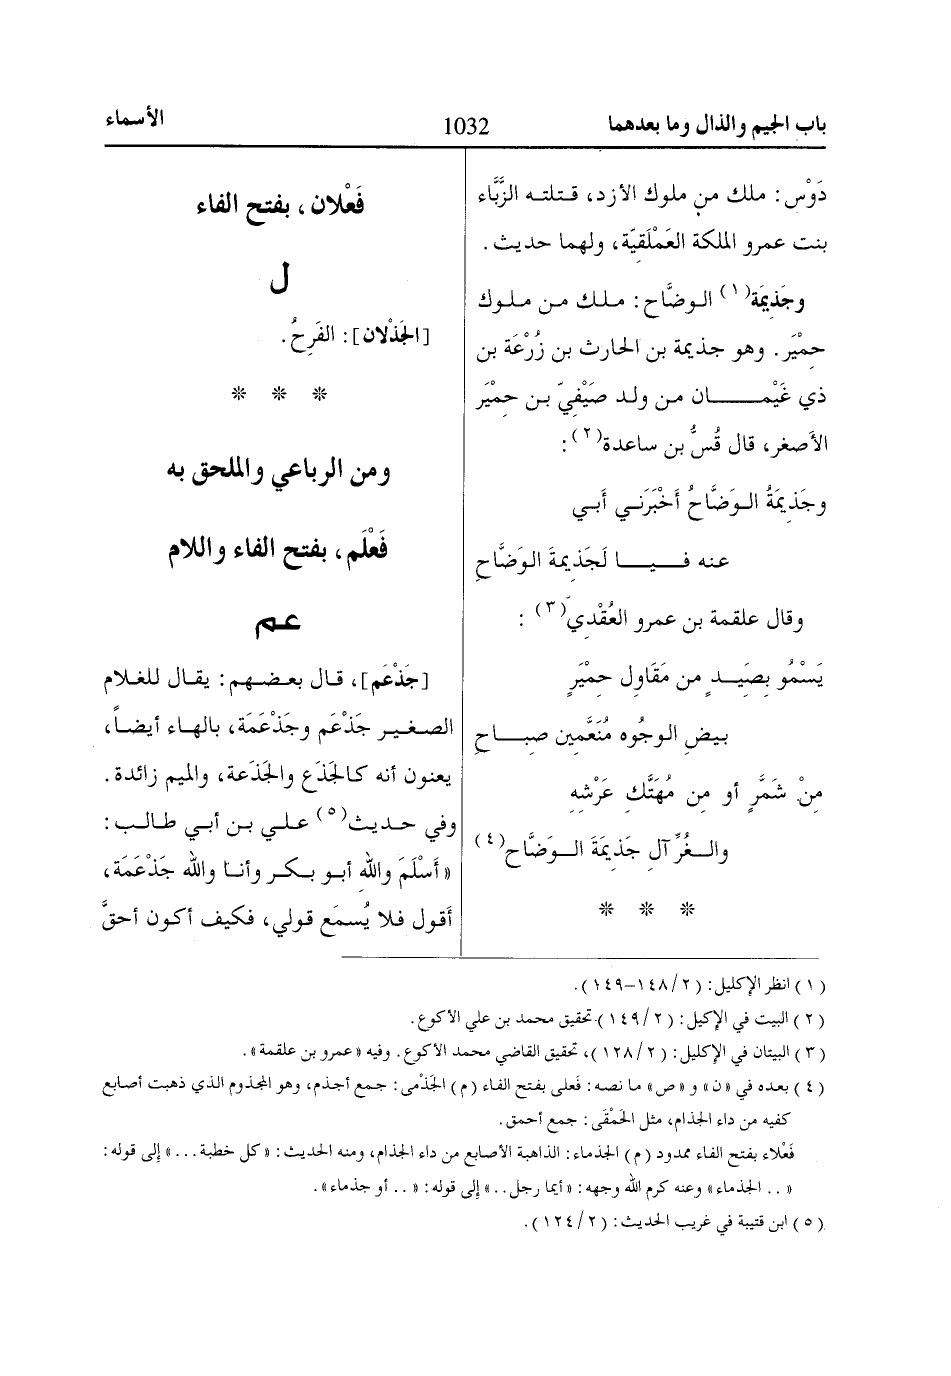 باب الجيم والذال وما بعدهما
1032
الأسماء
دَوْس: ملك من ملوك الأزد، قتلته الزَّبَّاء
بنت عمرو الملكة العَمْلَقيّة، ولهما حديث.
وجَذيمَة(١) الوضَّاح: ملك من ملوك
حِمْيَر. وهو جذيمة بن الحارث بن زُرْعَة بن
ذي غَيْمان من ولد صَيْفِيّ بن حِمْيَر
الأصغر، قال قُسُّ بن ساعدة(٢):
وجَذِيمَةُ الوَضَّاحُ أخْبَرَني أبي
عنه فيا لَجَذِيمَةَ الوَضَّاحِ
وقال علقمة بن عمرو العُقْدي(٣):
يَسْمُو بصَيدٍ من مَقَاول حِمْيَرٍ
بيضِ الوجُوه مُنَعَّمين صِباحِ
مِنْ شَمَّرٍ أو مِن مُهَتَّك عَرْشِه
والغُرِّ آل جَذيمَةَ الوَضَّاح(٤)
* * *
فَعْلان، بفتح الفاء
ل
[الجَذْلان]: الفَرِحُ.
* * *
ومن الرباعي والملحق به
فَعْلَم، بفتح الفاء واللام
عم
[جَذْعَم]، قال بعضهم: يقال للغلام
الصغير جَذْعَم وجَذْعَمَة، بالهاء أيضاً،
يعنون أنه كالجَذَع والجَذَعة، والميم زائدة.
وفي حديث(٥) علي بن أبي طالب:
«أسْلَمَ والله أبو بكر وأنا والله جَذْعَمَة،
أقول فلا يُسمَع قولي، فكيف أكون أحقَّ
(١) انظر الإكليل: (١٤٨/٢–١٤٩).
(٢) البيت في الإكيل: (١٤٩/٢) تحقيق محمد بن علي الأكوع.
(٣) البيتان في الإكليل: (١٢٨/٢)، تحقيق القاضي محمد الأكوع. وفيه «عمرو بن علقمة».
(٤) بعده في «ن» و«ص» ما نصه: فَعلى بفتح الفاء (م) الجَذْمى: جمع أجذم، وهو المجذوم الذي ذهبت أصابع
كفيه من داء الجذام، مثل الحَمْقَى: جمع أحمق.
فَعْلاء بفتح الفاء ممدود (م) الجذماء: الذاهبة الأصابع من داء الجذام، ومنه الحديث: «كل خطبة...» إلى قوله:
«.. الجذماء» وعنه كرم الله وجهه: «أيما رجل..» إلى قوله: «.. أو جذماء».
(٥) ابن قتيبة في غريب الحديث: (١٢٤/٢).